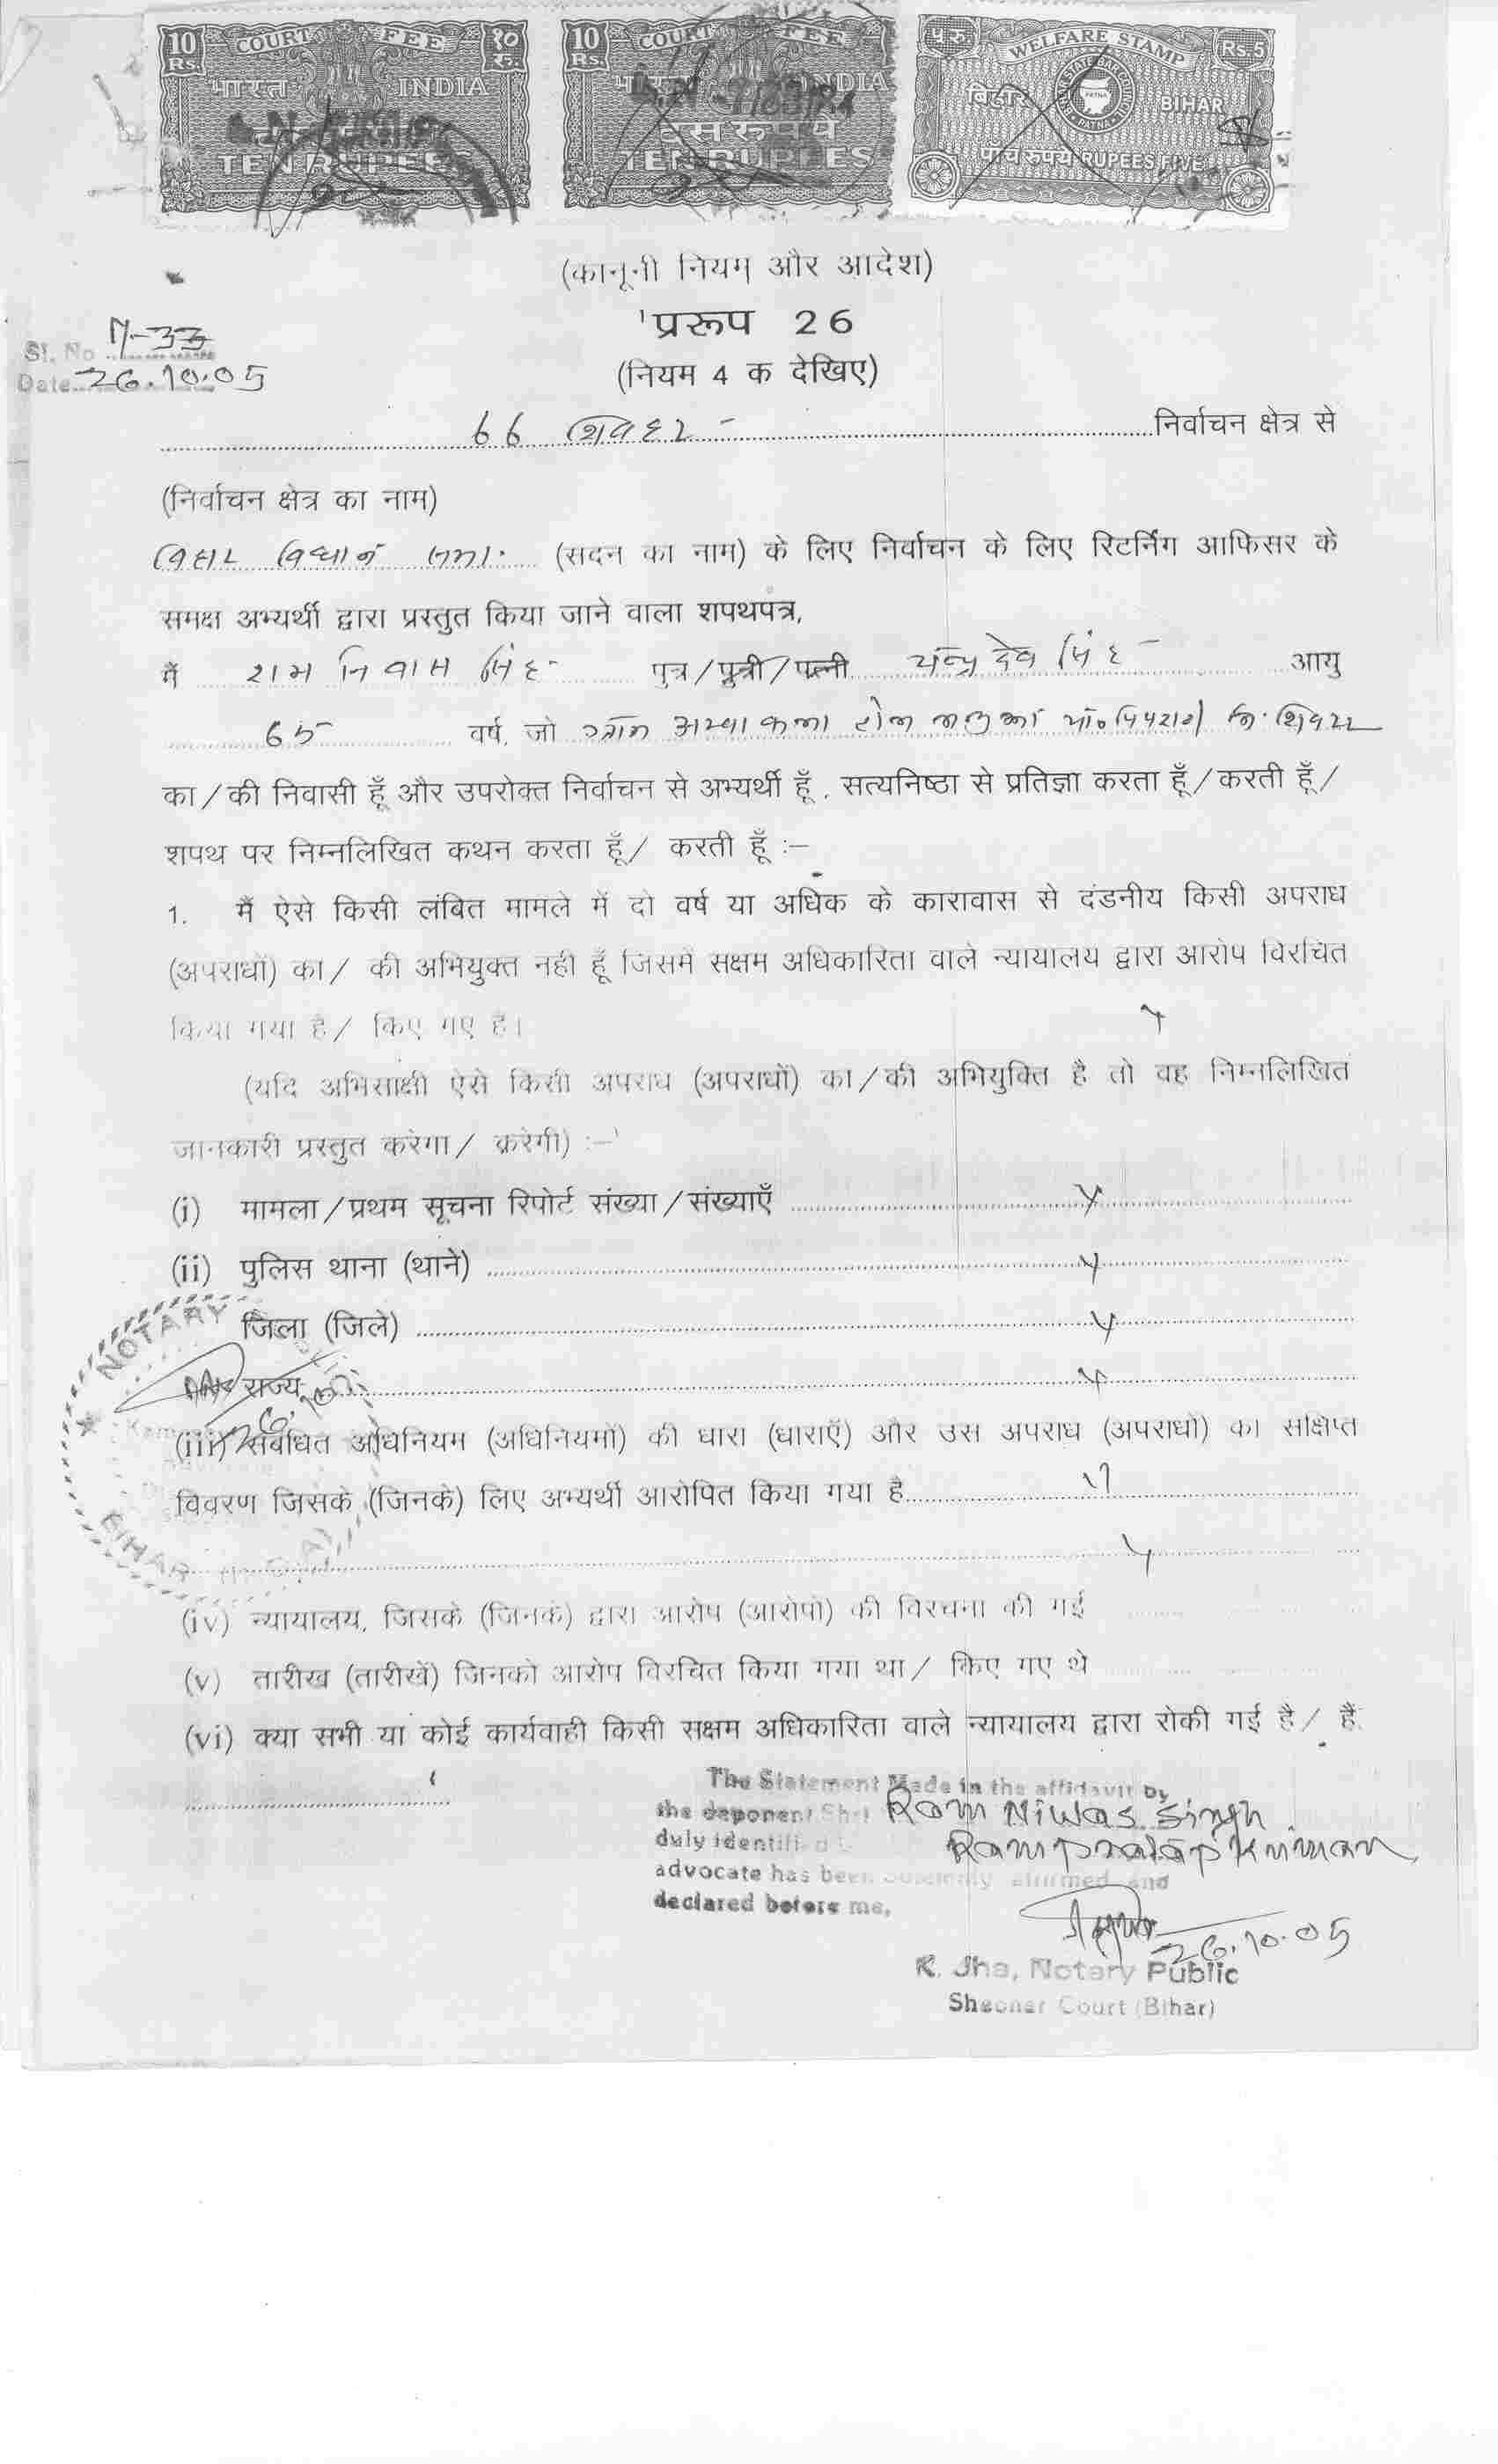 10 Rs. COURT FEE १० रु. 10 Rs. COURT FEE ५ रु. WELFARE STAMP Rs.5
भारत INDIA INDIA बिहार BIHAR
TEN RUPEES दस रुपये TEN RUPEES पाँच रुपये RUPEES FIVE
(कानूनी नियम और आदेश)
प्ररूप 26
Sl. No. N-33
Date 26.10.05
(नियम 4 क देखिए)
66 शिवहर निर्वाचन क्षेत्र से
(निर्वाचन क्षेत्र का नाम)
बिहार विधान सभा (सदन का नाम) के लिए निर्वाचन के लिए रिटर्निग आफिसर के
समक्ष अभ्यर्थी द्वारा प्रस्तुत किया जाने वाला शपथपत्र,
मैं राम निवास सिंह पुत्र/पुत्री/पत्नी चन्द्र देव सिंह आयु
65 वर्ष, जो ग्राम अम्बा कला शिवहर
का/की निवासी हूँ और उपरोक्त निर्वाचन से अभ्यर्थी हूँ, सत्यनिष्ठा से प्रतिज्ञा करता हूँ/करती हूँ/
शपथ पर निम्नलिखित कथन करता हूँ/ करती हूँ :–
1. मैं ऐसे किसी लंबित मामले में दो वर्ष या अधिक के कारावास से दंडनीय किसी अपराध
(अपराधों) का/ की अभियुक्त नही हूँ जिसमें सक्षम अधिकारिता वाले न्यायालय द्वारा आरोप विरचित
किया गया है/ किए गए हैं।
(यदि अभिसाक्षी ऐसे किसी अपराध (अपराधों) का/की अभियुक्ति है तो वह निम्नलिखित
जानकारी प्रस्तुत करेगा/ करेगी) :–
(i) मामला/प्रथम सूचना रिपोर्ट संख्या/संख्याएँ
(ii) पुलिस थाना (थाने)
जिला (जिले)
राज्य
(iii) संबंधित अधिनियम (अधिनियमों) की धारा (धाराएँ) और उस अपराध (अपराधों) का संक्षिप्त
विवरण जिसके (जिनके) लिए अभ्यर्थी आरोपित किया गया है
NOTARY
BIHAR
(iv) न्यायालय, जिसके (जिनके) द्वारा आरोप (आरोपों) की विरचना की गई
(v) तारीख (तारीखें) जिनको आरोप विरचित किया गया था/ किए गए थे
(vi) क्या सभी या कोई कार्यवाही किसी सक्षम अधिकारिता वाले न्यायालय द्वारा रोकी गई है/ हैं
The Statement Made in the affidavit by
the deponent Shri Ram Niwas Singh
duly identified Ram Pratap Kumar
advocate has been solemnly affirmed and
declared before me,
26.10.05
K. Jha, Notary Public
Sheohar Court (Bihar)